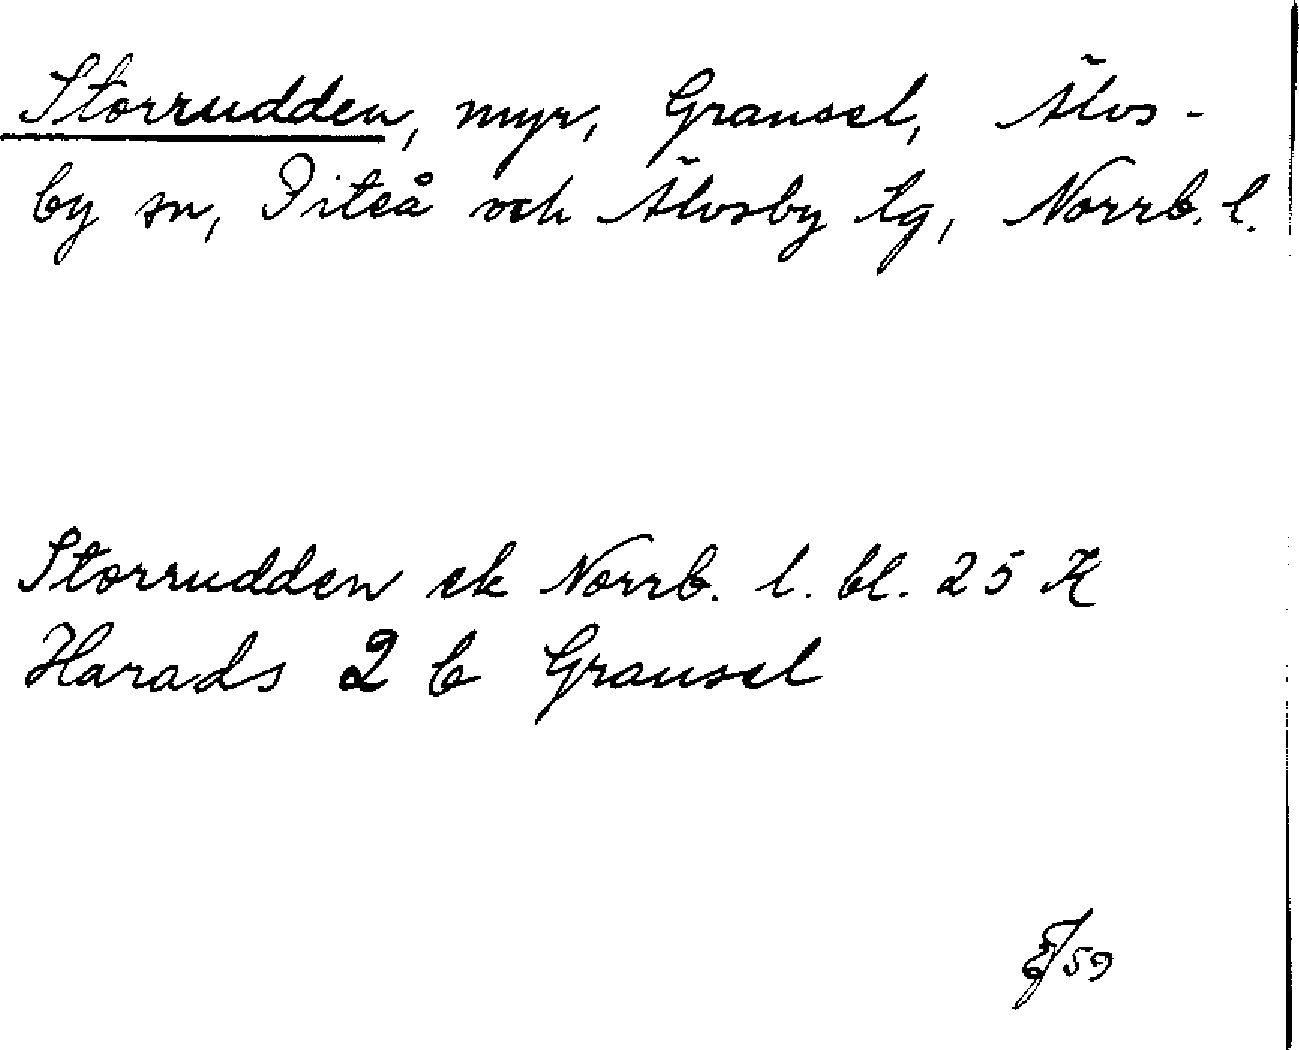 Storrudden, myr, Gransel, Älvs-
by sn, Piteå och Älvsby lg, Norrb. l.
Storrudden ek Norrb. l. bl. 25 K
Harads 2 b Gransel
59